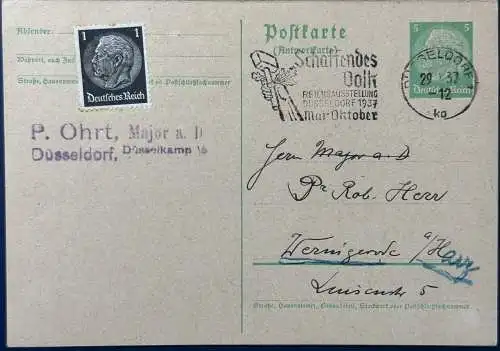 Absender:
Wohnort, auch Zustell-
Straße, Hausnummer,
od. Postschließfachnummer
1 1
Deutsches Reich
P. Ohrt, Major a. D
Düsseldorf, Düsselkamp 16
Postkarte
(Antwortkarte)
Schaffendes
Volk
REICHSAUSSTELLUNG
DÜSSELDORF 1937
Mai-Oktober
5 5
Deutsches Reich
DÜSSELDORF
29 37
12
ko
Herrn Major a. D
Rob. Herr
Wernigerode a/Harz
Luisenstr 5
Straße, Hausnummer, Gebäudeteil, Stockwerk oder Postschließfachnummer